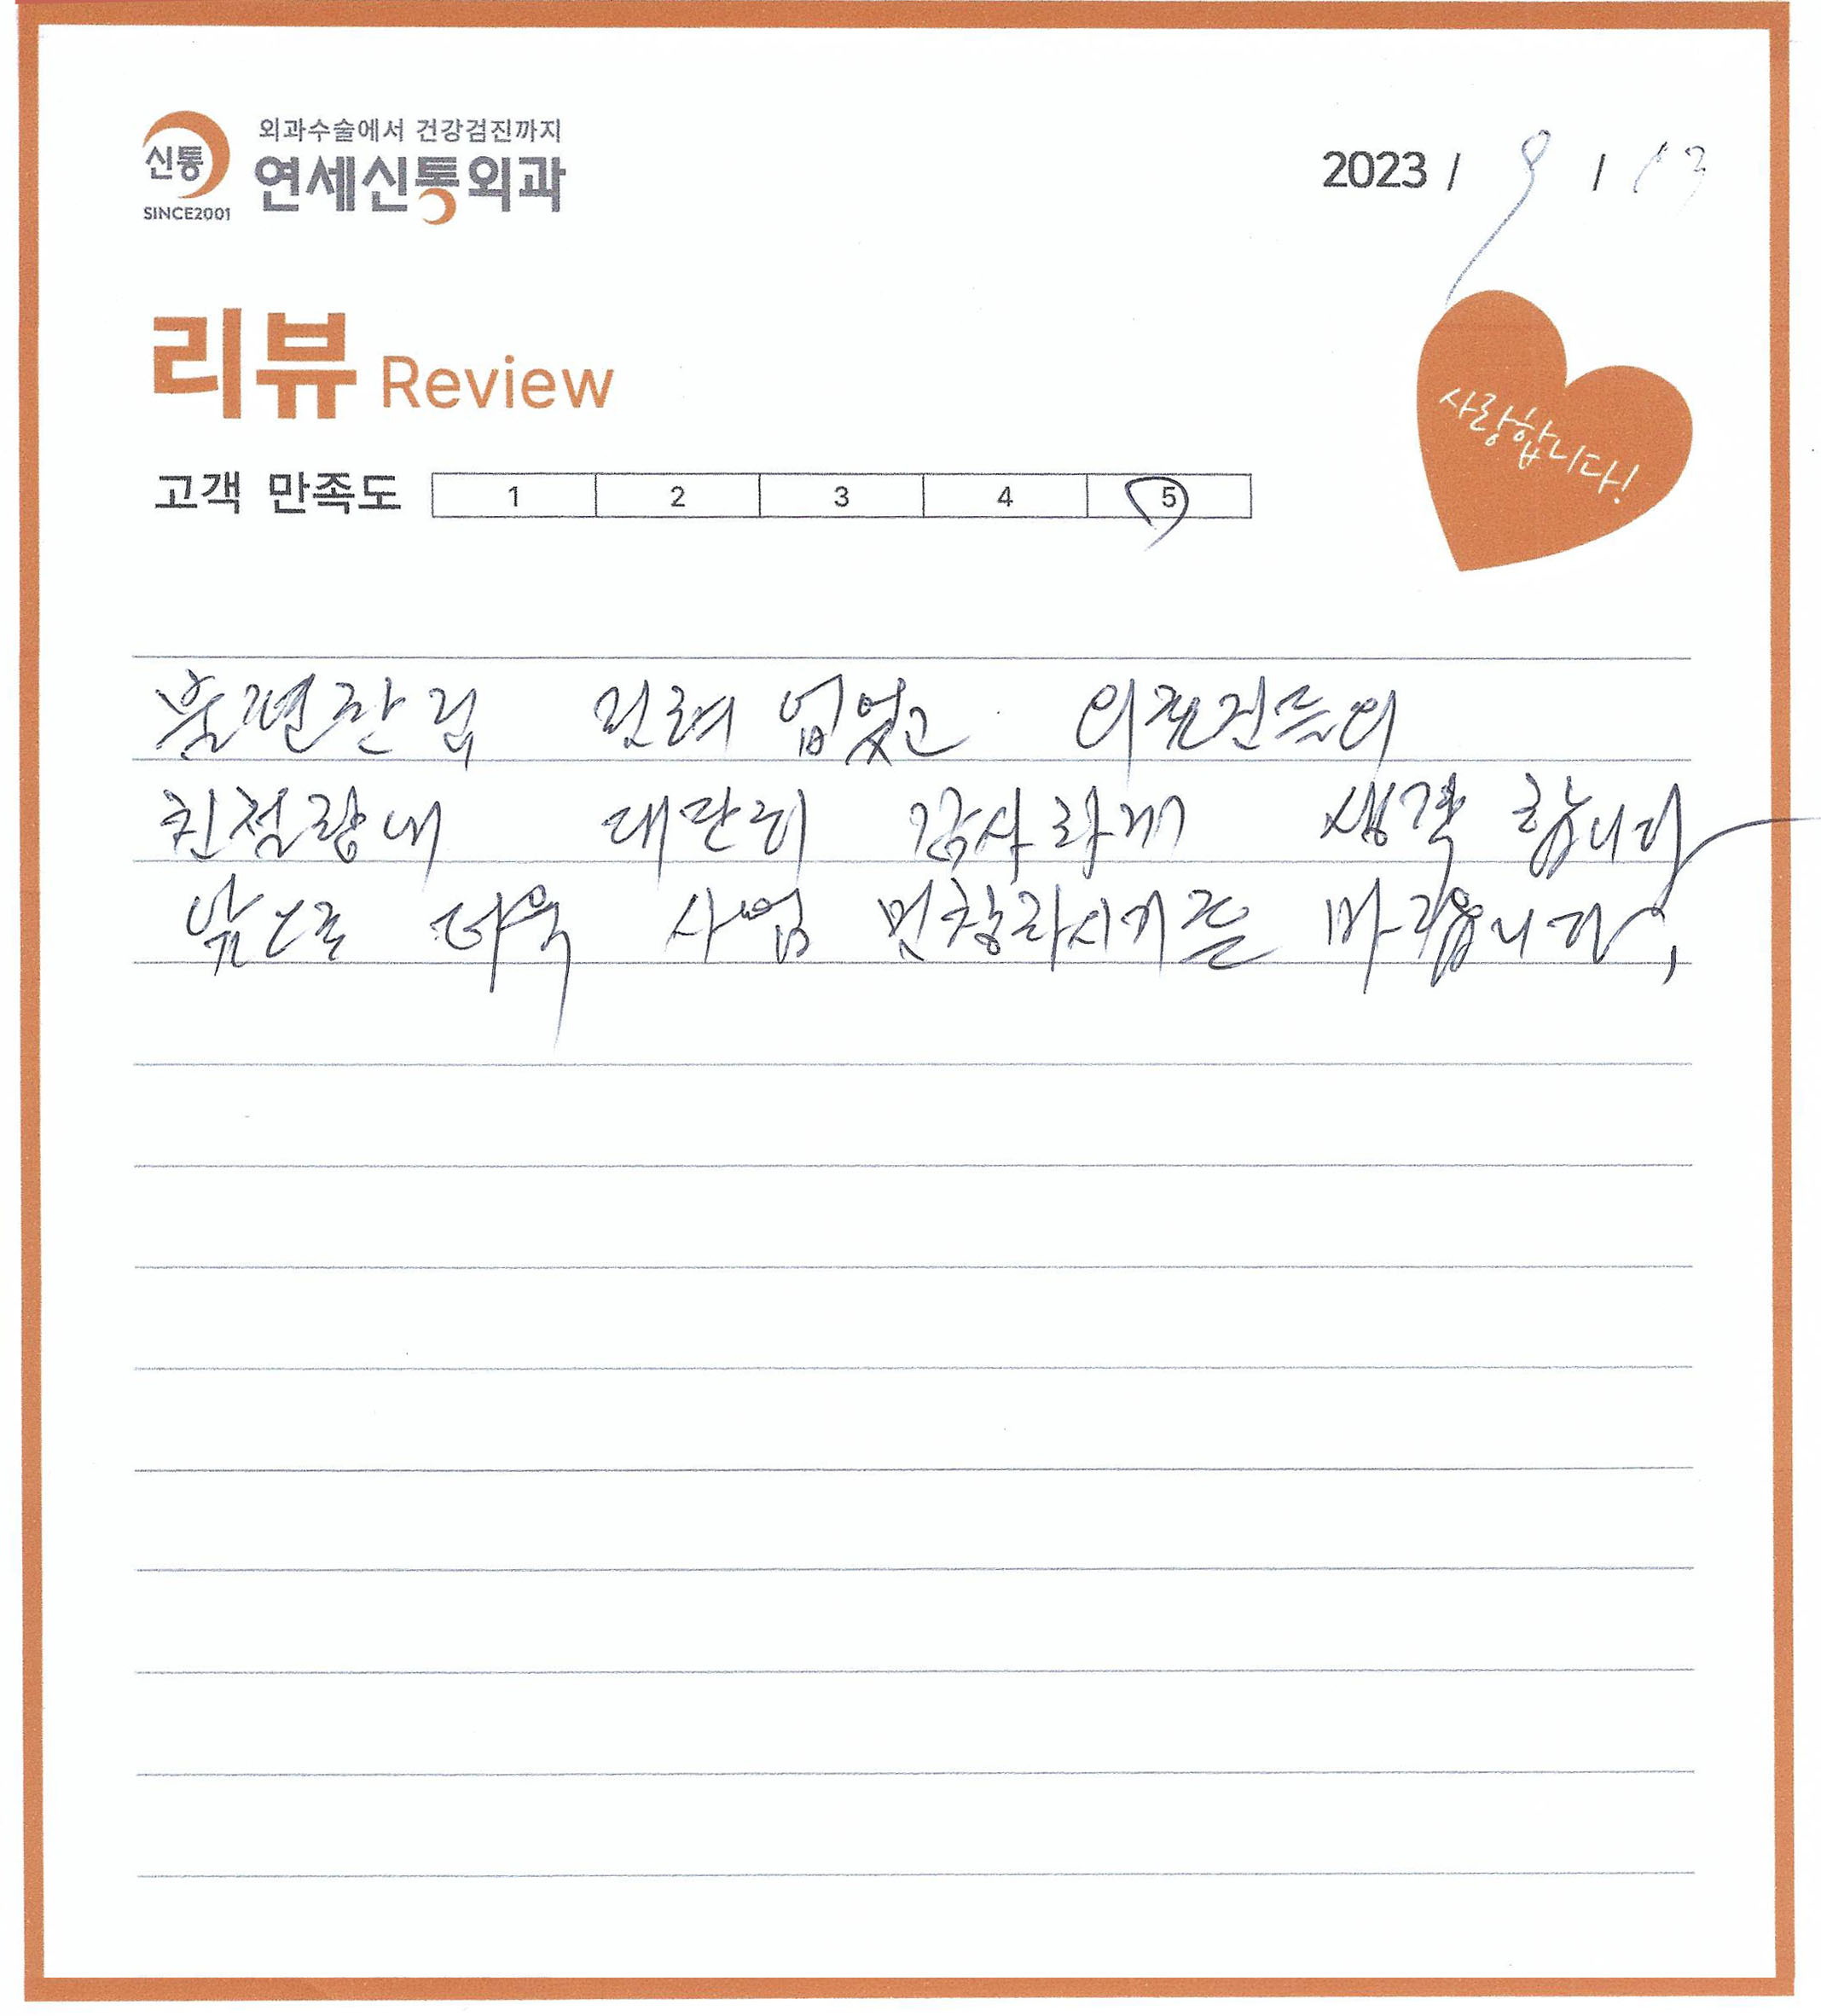 외과수술에서 건강검진까지
신통 연세신통외과
SINCE2001
2023 / 9 / 13
리뷰 Review
사랑합니다!
고객 만족도 1 2 3 4 5
불편한 점 전혀 없었고 의료진들의
친절함에 대단히 감사하게 생각 합니다
앞으로 더욱 사업 번창하시기를 바랍니다.